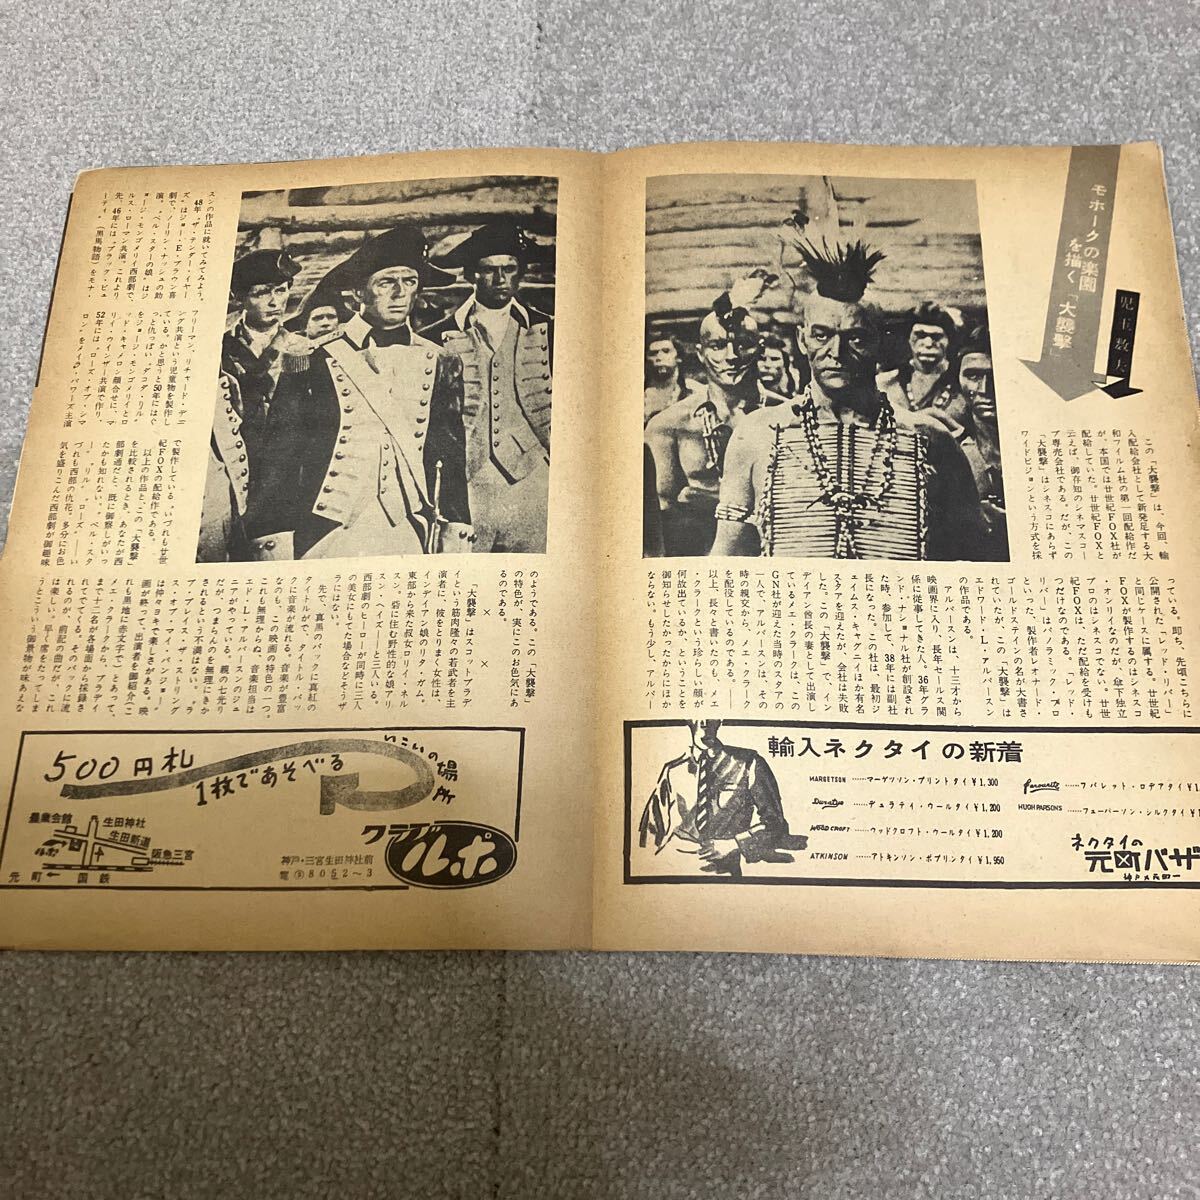 モホークの楽園
を描く「大襲撃」
児玉数夫
この「大襲撃」は、今回、輸
入配給会社として新発足する大
和フィルム社の第一回配給作だ
が、本国では廿世紀FOX社が
配給していた。廿世紀FOXと
云えば、御存知のシネマスコー
プ専売会社である。だが、この
「大襲撃」はシネスコにあらず
ワイドビジョンという方式を採
っている。即ち、先頃こちらに
公開された「レッド・リバー」
と同じケースに属する。廿世紀
FOXが製作するのはシネスコ
・オンリイなのだが、傘下独立
プロのはシネスコでない。廿世
紀FOXは、ただ配給を受けも
つだけなのである。「レッド・
リバー」はパノラミック・プロ
といった。製作者レオナード・
ゴールドステインの名が大書さ
れていたが、この「大襲撃」は
エドワード・L・アルバースン
の作品である。
アルバースンは、十三才から
映画界に入り、長年セールス関
係に従事してきた人、36年グラ
ンド・ナショナル社が創設され
た時、参加して、38年には副社
長になった。この社は、最初ジ
ェイムス・キャグニイほか有名
スタアを迎えたが、会社は失敗
した。この「大襲撃」で、イン
デイアン酋長の妻として出演し
ているメエ・クラークは、この
GN社が迎えた当時のスタアの
一人で、アルバースンは、その
時の親交から、メエ・クラーク
を配役しているのである。――
以上、長々と書いたのも、メエ
・クラークという珍らしい顔が
何故出ているか、ということを
御知らせしたかったからにほか
ならない。もう少し、アルバー
輸入ネクタイの新着
MARGETSON ……マーゲツソン・プリントタイ ¥1,300
Duratye ……デュラテイ・ウールタイ ¥1,200
WOOD CROFT ……ウッドクロフト・ウールタイ ¥1,200
ATKINSON ……アトキンソン・ポプリンタイ ¥1,950
Favourite ……フバレット・ロデアタイ ¥1,
HUGH PARSONS ……フューパーソン・シルクタイ ¥1
ネクタイの
元町バザ
神戸大丸前
スンの作品に就いてみてみよう。
48年〝ザ・テンダー・イヤー
ズ〟はジョー・E・ブラウン喜
劇で、ノーリン・ナッシュの助
演。〝ベル・スターの娘〟はジ
ョージ・モンゴメリイ西部劇で、
ルス・ローマン共演。これより
先、46年には〝ブラック・ビュ
ーティ〟（黒馬物語）をモナ・
フリーマン、リチャード・デニ
ング共演という児童物を製作し
ている。かと思うと50年にはぐ
っと仇っぽい〝ダコタ・リル〟
をジョージ・モンゴメリイとロ
ッド・キャメロン顔合せに、マ
リイ・ウインザー共演で作り、
52年には〝ローズ・オブ・シマ
ロン〟をメイラ・パワーズ主演
で製作している。いづれも廿世
紀FOXの配給作である。
以上の作品と、この「大襲撃」
を比較されるとき、あなたが西
部劇通だと、既に御察しがいっ
たかも知れない。〝ベル・スタ
ー〟〝リル〟〝ローズ〟――い
づれも西部の仇花。多分にお色
気を盛りこんだ西部劇が御趣味
のようである。この「大襲撃」
の特色が、実にこのお色気にあ
るのである。
×　×　×
「大襲撃」はスコットブラデ
イという筋肉隆々の若武者を主
演者に、彼をとりまく女性は、
インデイアン娘のリタ・ガム。
東部から来た叔女のロリイ・ネル
スン。砦に住む野性的な娘アリ
スン・ヘイズ――と三人いる。
西部劇のヒーローが同時に三人
の美女にもてた場合などそうザ
ラにはない。
先で、真黒のバックに真紅の
タイトルがで、タイトル・バッ
クに音楽が流れる。音楽が豊富
なのも、この映画の特色の一つ。
これも無理からぬ、音楽担当は
エド・L・アルバースンのジュ
ニアがやっている。親の七光り
か、つまらんのを無理にきか
されるという不満はない。〝プ
ス・プレイス・ザ・ストリング
ス・オブ・マイ・バンジョー〟
は仲々ヨキで楽しさがある。映
画が終って、出演者を御紹介（こ
れも黒地に赤文字で）とあって、
メエ・クラークから、ブラデイ
まで十二名が各場面から採録さ
れてでてくる。そのバックに流
れるのが、前記の曲だが、これ
は楽しい。早く席をたってしま
うとこういう御景物が味あえな
500円札
1枚であそべる
いこいの場所
クラブ
ルポ
神戸・三宮生田神社前
電③8052～3
農業会館
生田神社
生田新道
ルポ
阪急三宮
元町
国鉄